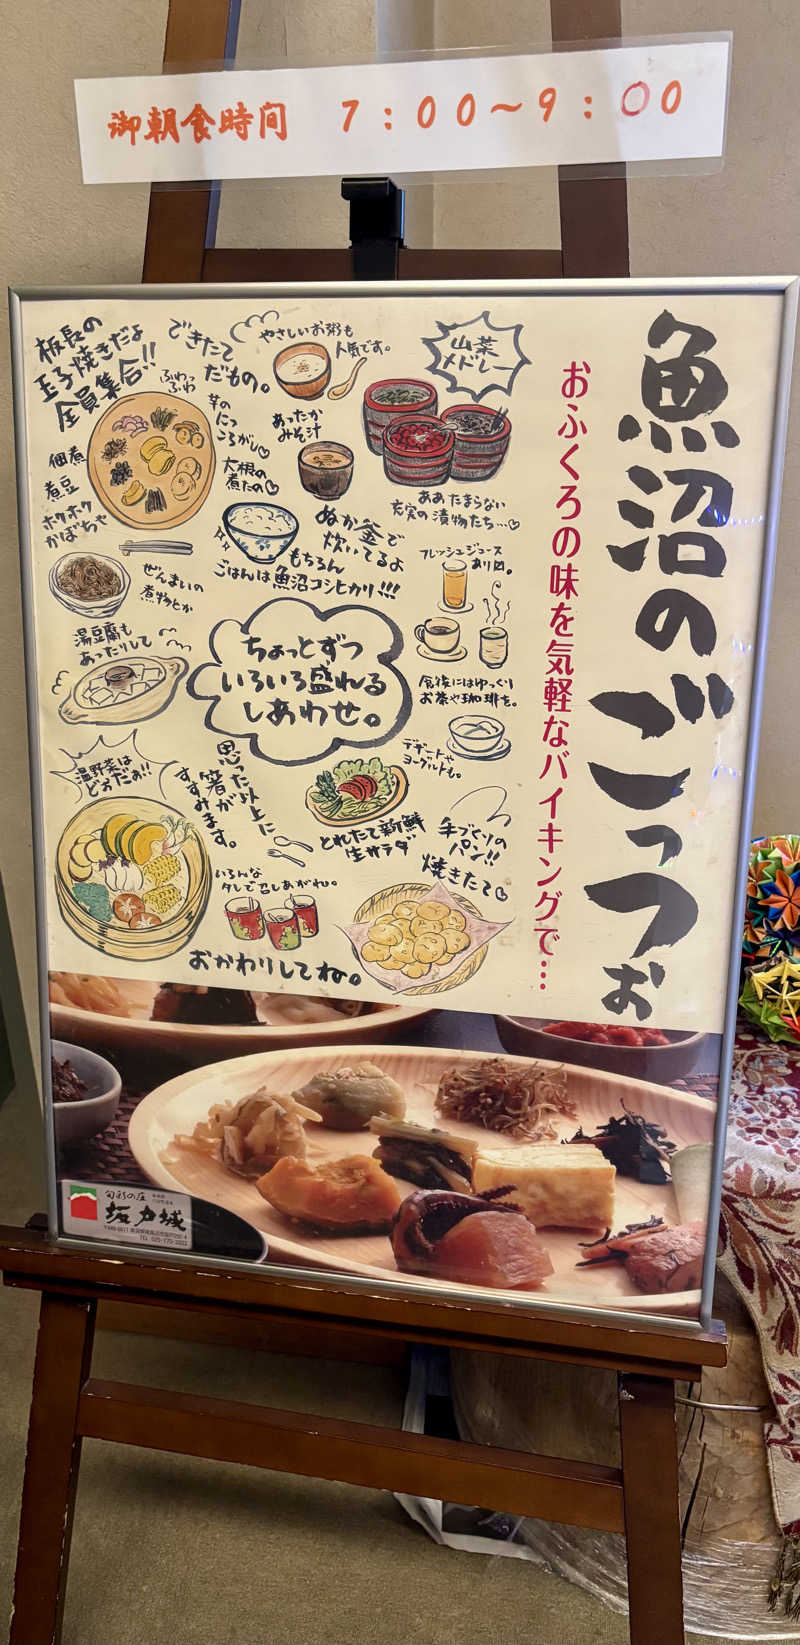 御朝食時間 7:00〜9:00
魚沼のごっつお
おふくろの味を気軽なバイキングで…
板長の
玉子焼きだよ
全員集合!!
できたて
だもの。
やさしいお粥も
人気です。
山菜
メドレー
ふわっ
ふわ
芋の
にっ
ころがし♡
あったか
みそ汁
佃煮
煮豆
ホクホク
かぼちゃ
大根の
煮たの♡
ああたまらない
充実の漬物たち…♡
ぬか釜で
炊いてるよ
もちろん
ごはんは魚沼コシヒカリ!!!
フレッシュジュース
あり〼。
ぜんまいの
煮物とか
湯豆腐も
あったりして
ちょっとずつ
いろいろ盛れる
しあわせ。
食後にはゆっくり
お茶や珈琲を。
デザートや
ヨーグルトも。
温野菜は
どおだぁ!!
思った以上に
箸が
すすみます。
とれたて新鮮
生サラダ
手づくりの
パン!!
焼きたて♡
いろんな
タレで召しあがれ。
おかわりしてね。
旬彩の庄
坂戸城